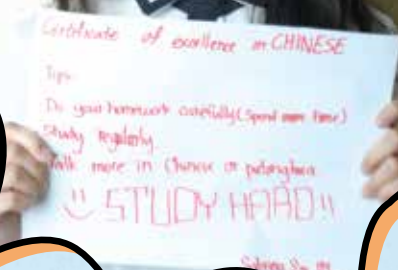 Certificate of excellence in CHINESE
Tips:
Do your homework carefully (Spend more time)
Study regularly
Talk more in Chinese or putonghua
!! STUDY HARD!!